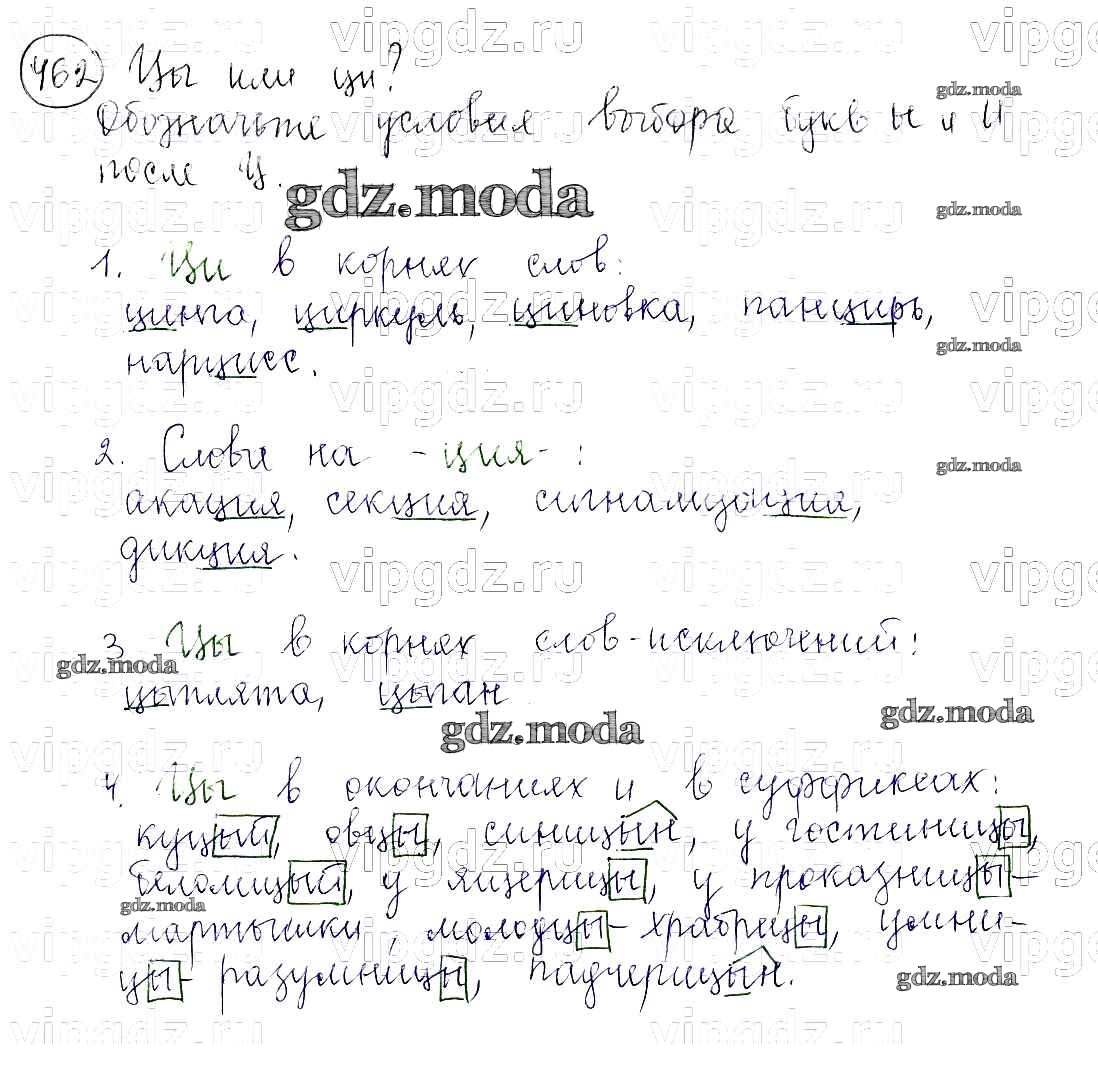 462 Цы или ци?
Обозначьте условия выбора букв ы и и
после ц.
gdz.moda
1. Ци в корнях слов:
цинга, циркуль, циновка, панцирь,
нарцисс.
2. Слова на -ция- :
акация, секция, сигнализация,
дикция.
3. Цы в корнях слов-исключений:
цыплята, цыган
gdz.moda
4. Цы в окончаниях и в суффиксах:
куцый, овцы, синицын, у гостиницы,
белолицый, у ящерицы, у проказницы-
мартышки, молодцы-храбрецы, умни-
цы-разумницы, падчерицын.